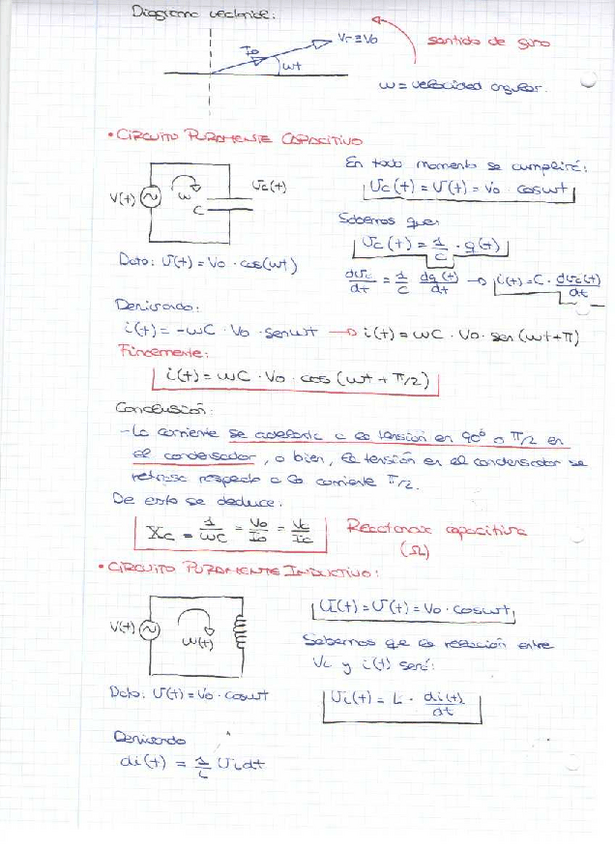 Diagrama vectorial:
Vr ≡ Vo
Io
wt
sentido de giro
w = velocidad angular.
• CIRCUITO PURAMENTE CAPACITIVO
V(t)
w
C
Uc(t)
En todo momento se cumplirá:
Uc(t) = U(t) = Vo · coswt
Sabemos que:
Uc(t) = 1/C · q(t)
Dato: U(t) = Vo · cos(wt)
dUc/dt = 1/C dq(t)/dt → i(t) = C · dUc(t)/dt
Derivando:
i(t) = -wC · Vo · senwt → i(t) = wC · Vo · sen(wt+π)
Finalmente:
i(t) = wC · Vo · cos(wt + π/2)
Conclusión:
- La corriente se adelanta a la tensión en 90º o π/2 en
el condensador, o bien, la tensión en el condensador se
retrasa respecto a la corriente π/2.
De esto se deduce:
Xc = 1/wC = Vo/Io = Vc/Ic
Reactancia capacitiva
(Ω)
• CIRCUITO PURAMENTE INDUCTIVO:
V(t)
w(t)
Ul(t) = U(t) = Vo · coswt
Sabemos que la relación entre
VL y i(t) será:
Dato: U(t) = Vo · coswt
UL(t) = L · di(t)/dt
Derivando
di(t) = 1/L UL dt